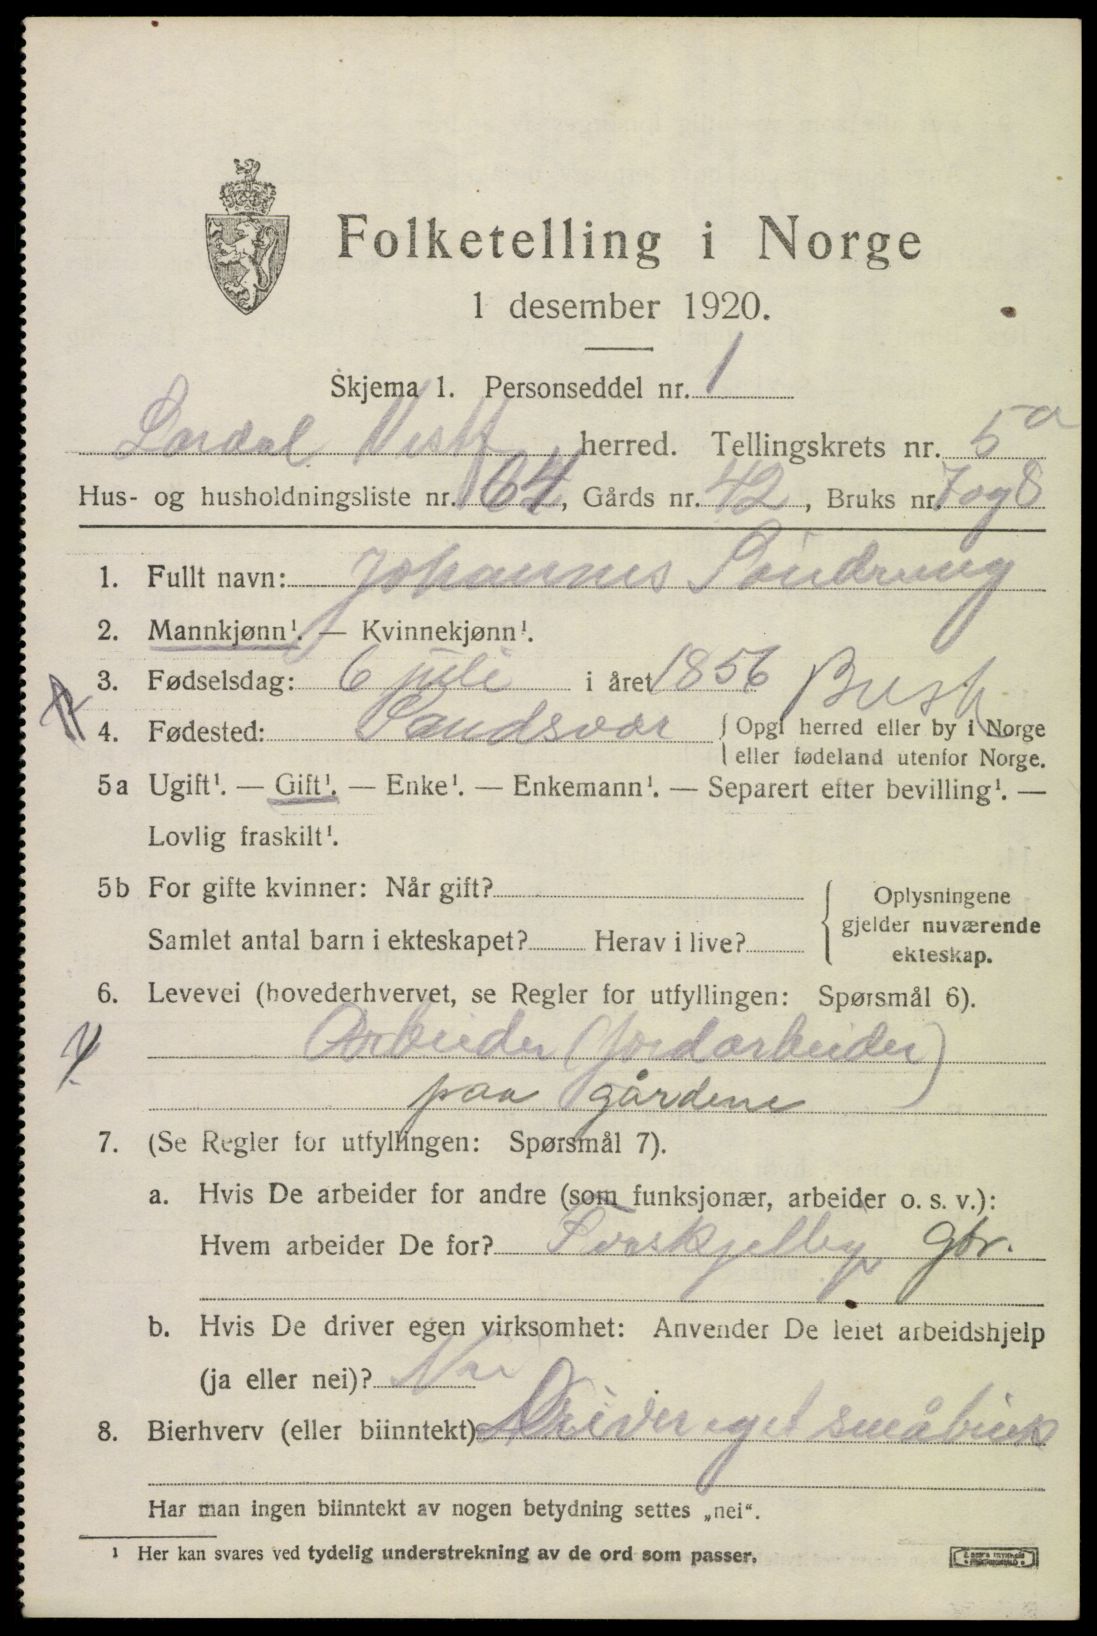 Folketelling i Norge
1 desember 1920.
Skjema 1. Personseddel nr. 1
Lardal Vestf herred. Tellingskrets nr. 5a
Hus- og husholdningsliste nr. 64, Gårds nr. 42, Bruks nr. 7og8
1. Fullt navn: Johannes
2. Mannkjønn¹. — Kvinnekjønn¹.
3. Fødselsdag: 6 juli i året 1856 Busk
4. Fødested: Sandsvær { Opgi herred eller by i Norge
eller fødeland utenfor Norge.
5a Ugift¹. — Gift¹. — Enke¹. — Enkemann¹. — Separert efter bevilling¹. —
Lovlig fraskilt¹.
5b For gifte kvinner: Når gift?
Samlet antal barn i ekteskapet? Herav i live?
{ Oplysningene
gjelder nuværende
ekteskap.
6. Levevei (hovederhvervet, se Regler for utfyllingen: Spørsmål 6).
Arbeider (Jordarbeider)
paa gårdene
7. (Se Regler for utfyllingen: Spørsmål 7).
a. Hvis De arbeider for andre (som funksjonær, arbeider o. s. v.):
Hvem arbeider De for? gbr.
b. Hvis De driver egen virksomhet: Anvender De leiet arbeidshjelp
(ja eller nei)? Nei
8. Bierhverv (eller biinntekt) Driver eget småbruk
Har man ingen biinntekt av nogen betydning settes „nei“.
¹ Her kan svares ved tydelig understrekning av de ord som passer.